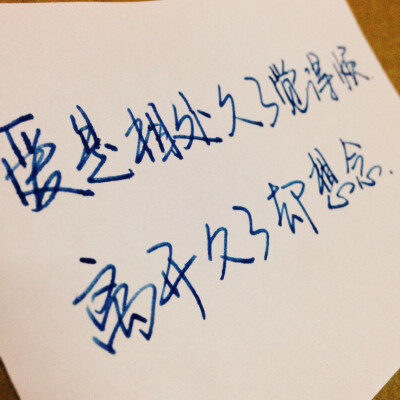 爱是相处久了觉得烦
离开久了却想念.